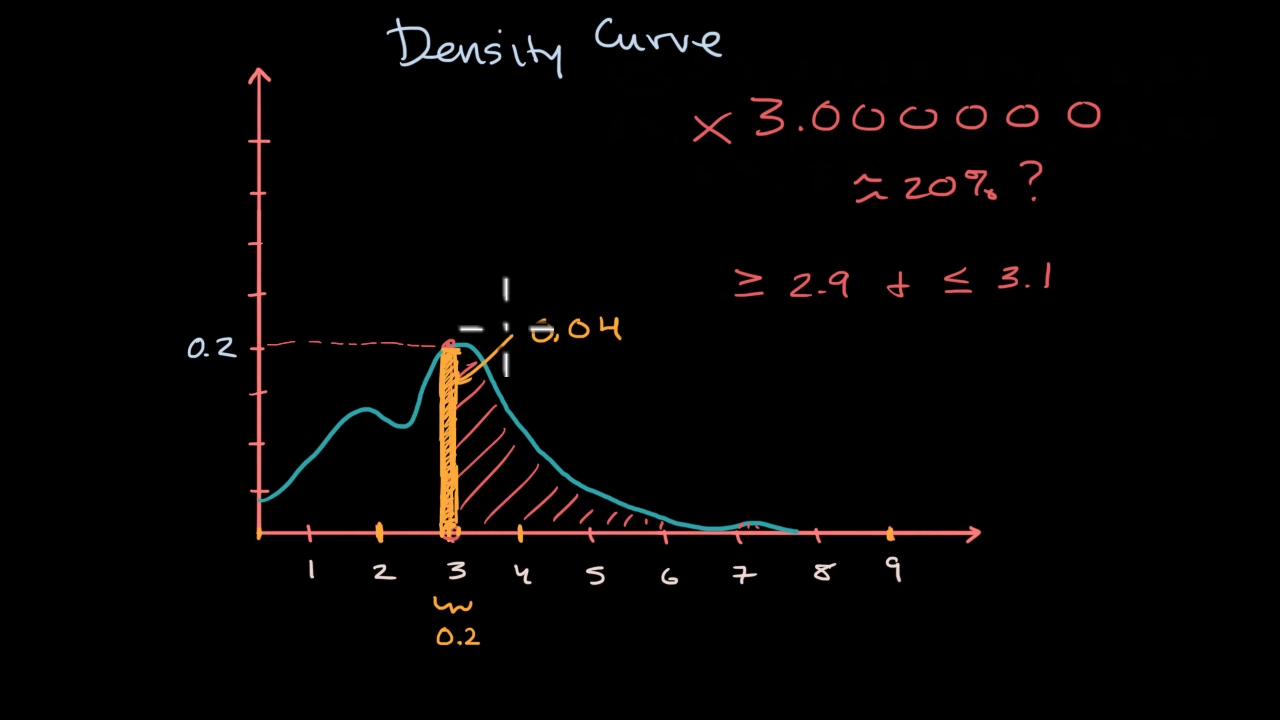 Density Curve
x 3.000000
≈ 20% ?
≥ 2.9 + ≤ 3.1
0.04
0.2
1 2 3 4 5 6 7 8 9
0.2